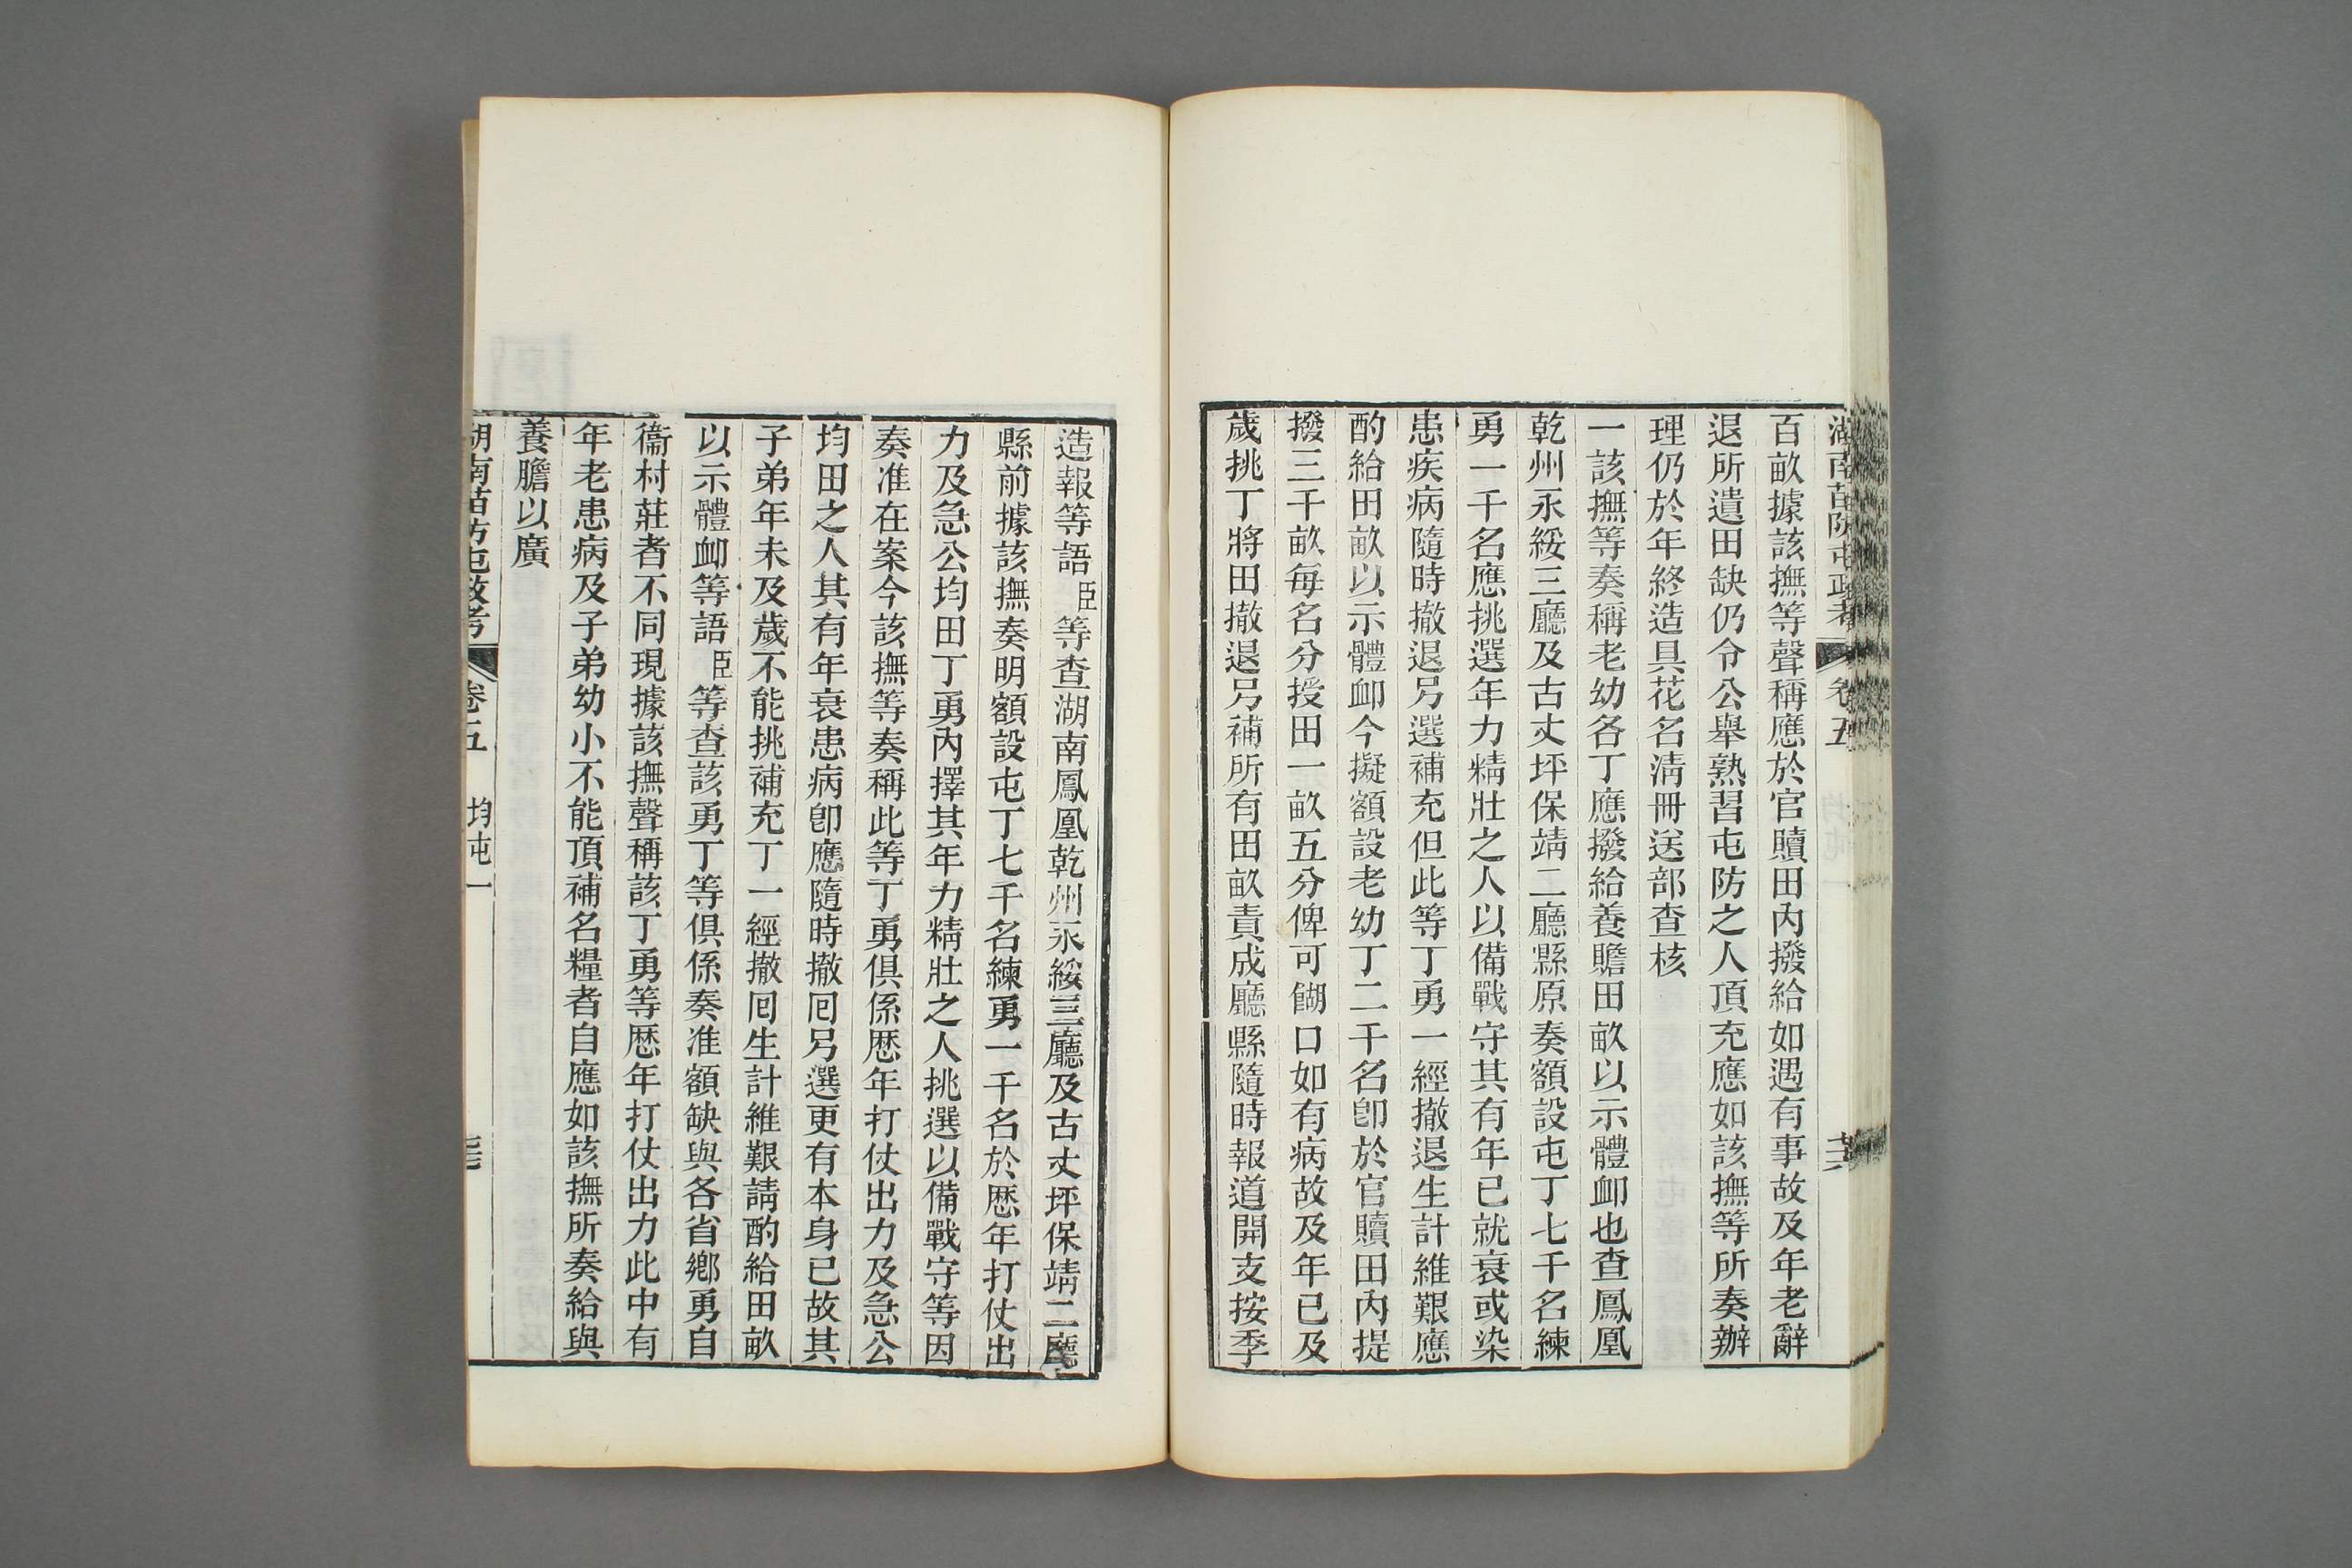 湖南苗防屯政考 卷五
百畝據該撫等聲稱應於官贖田內撥給如遇有事故及年老辭
退所遺田缺仍令公舉熟習屯防之人頂充應如該撫等所奏辦
理仍於年終造具花名清冊送部查核
一該撫等奏稱老幼各丁應撥給養贍田畝以示體卹也查鳳凰
乾州永綏三廳及古丈坪保靖二廳縣原奏額設屯丁七千名練
勇一千名應挑選年力精壯之人以備戰守其有年已就衰或染
患疾病隨時撤退另選補充但此等丁勇一經撤退生計維艱應
酌給田畝以示體卹今擬額設老幼丁二千名卽於官贖田內提
撥三千畝每名分授田一畝五分俾可餬口如有病故及年已及
歲挑丁將田撤退另補所有田畝責成廳縣隨時報道開支按季
造報等語臣等查湖南鳳凰乾州永綏三廳及古丈坪保靖二廳
縣前據該撫奏明額設屯丁七千名練勇一千名於歷年打仗出
力及急公均田丁勇內擇其年力精壯之人挑選以備戰守等因
奏准在案今該撫等奏稱此等丁勇俱係歷年打仗出力及急公
均田之人其有年衰患病卽應隨時撤回另選更有本身已故其
子弟年未及歲不能挑補充丁一經撤回生計維艱請酌給田畝
以示體卹等語臣等查該勇丁等俱係奏准額缺與各省鄉勇自
衞村莊者不同現據該撫聲稱該丁勇等歷年打仗出力此中有
年老患病及子弟幼小不能頂補名糧者自應如該撫所奏給與
養贍以廣
湖南苗防屯政考 卷五 均屯一